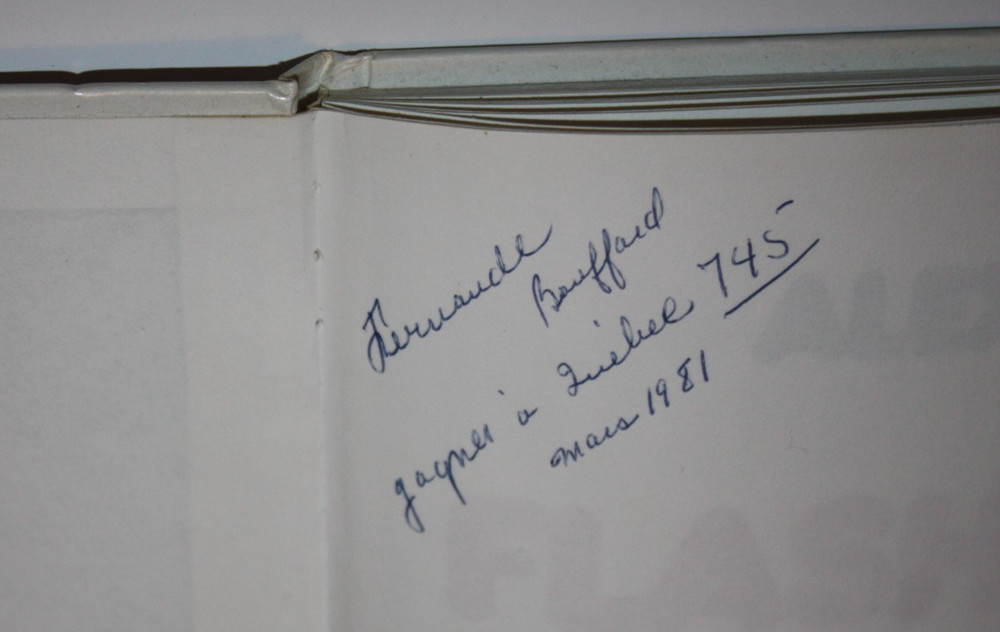 Fernande
Bouffard
gagner à Québec 745
mars 1981